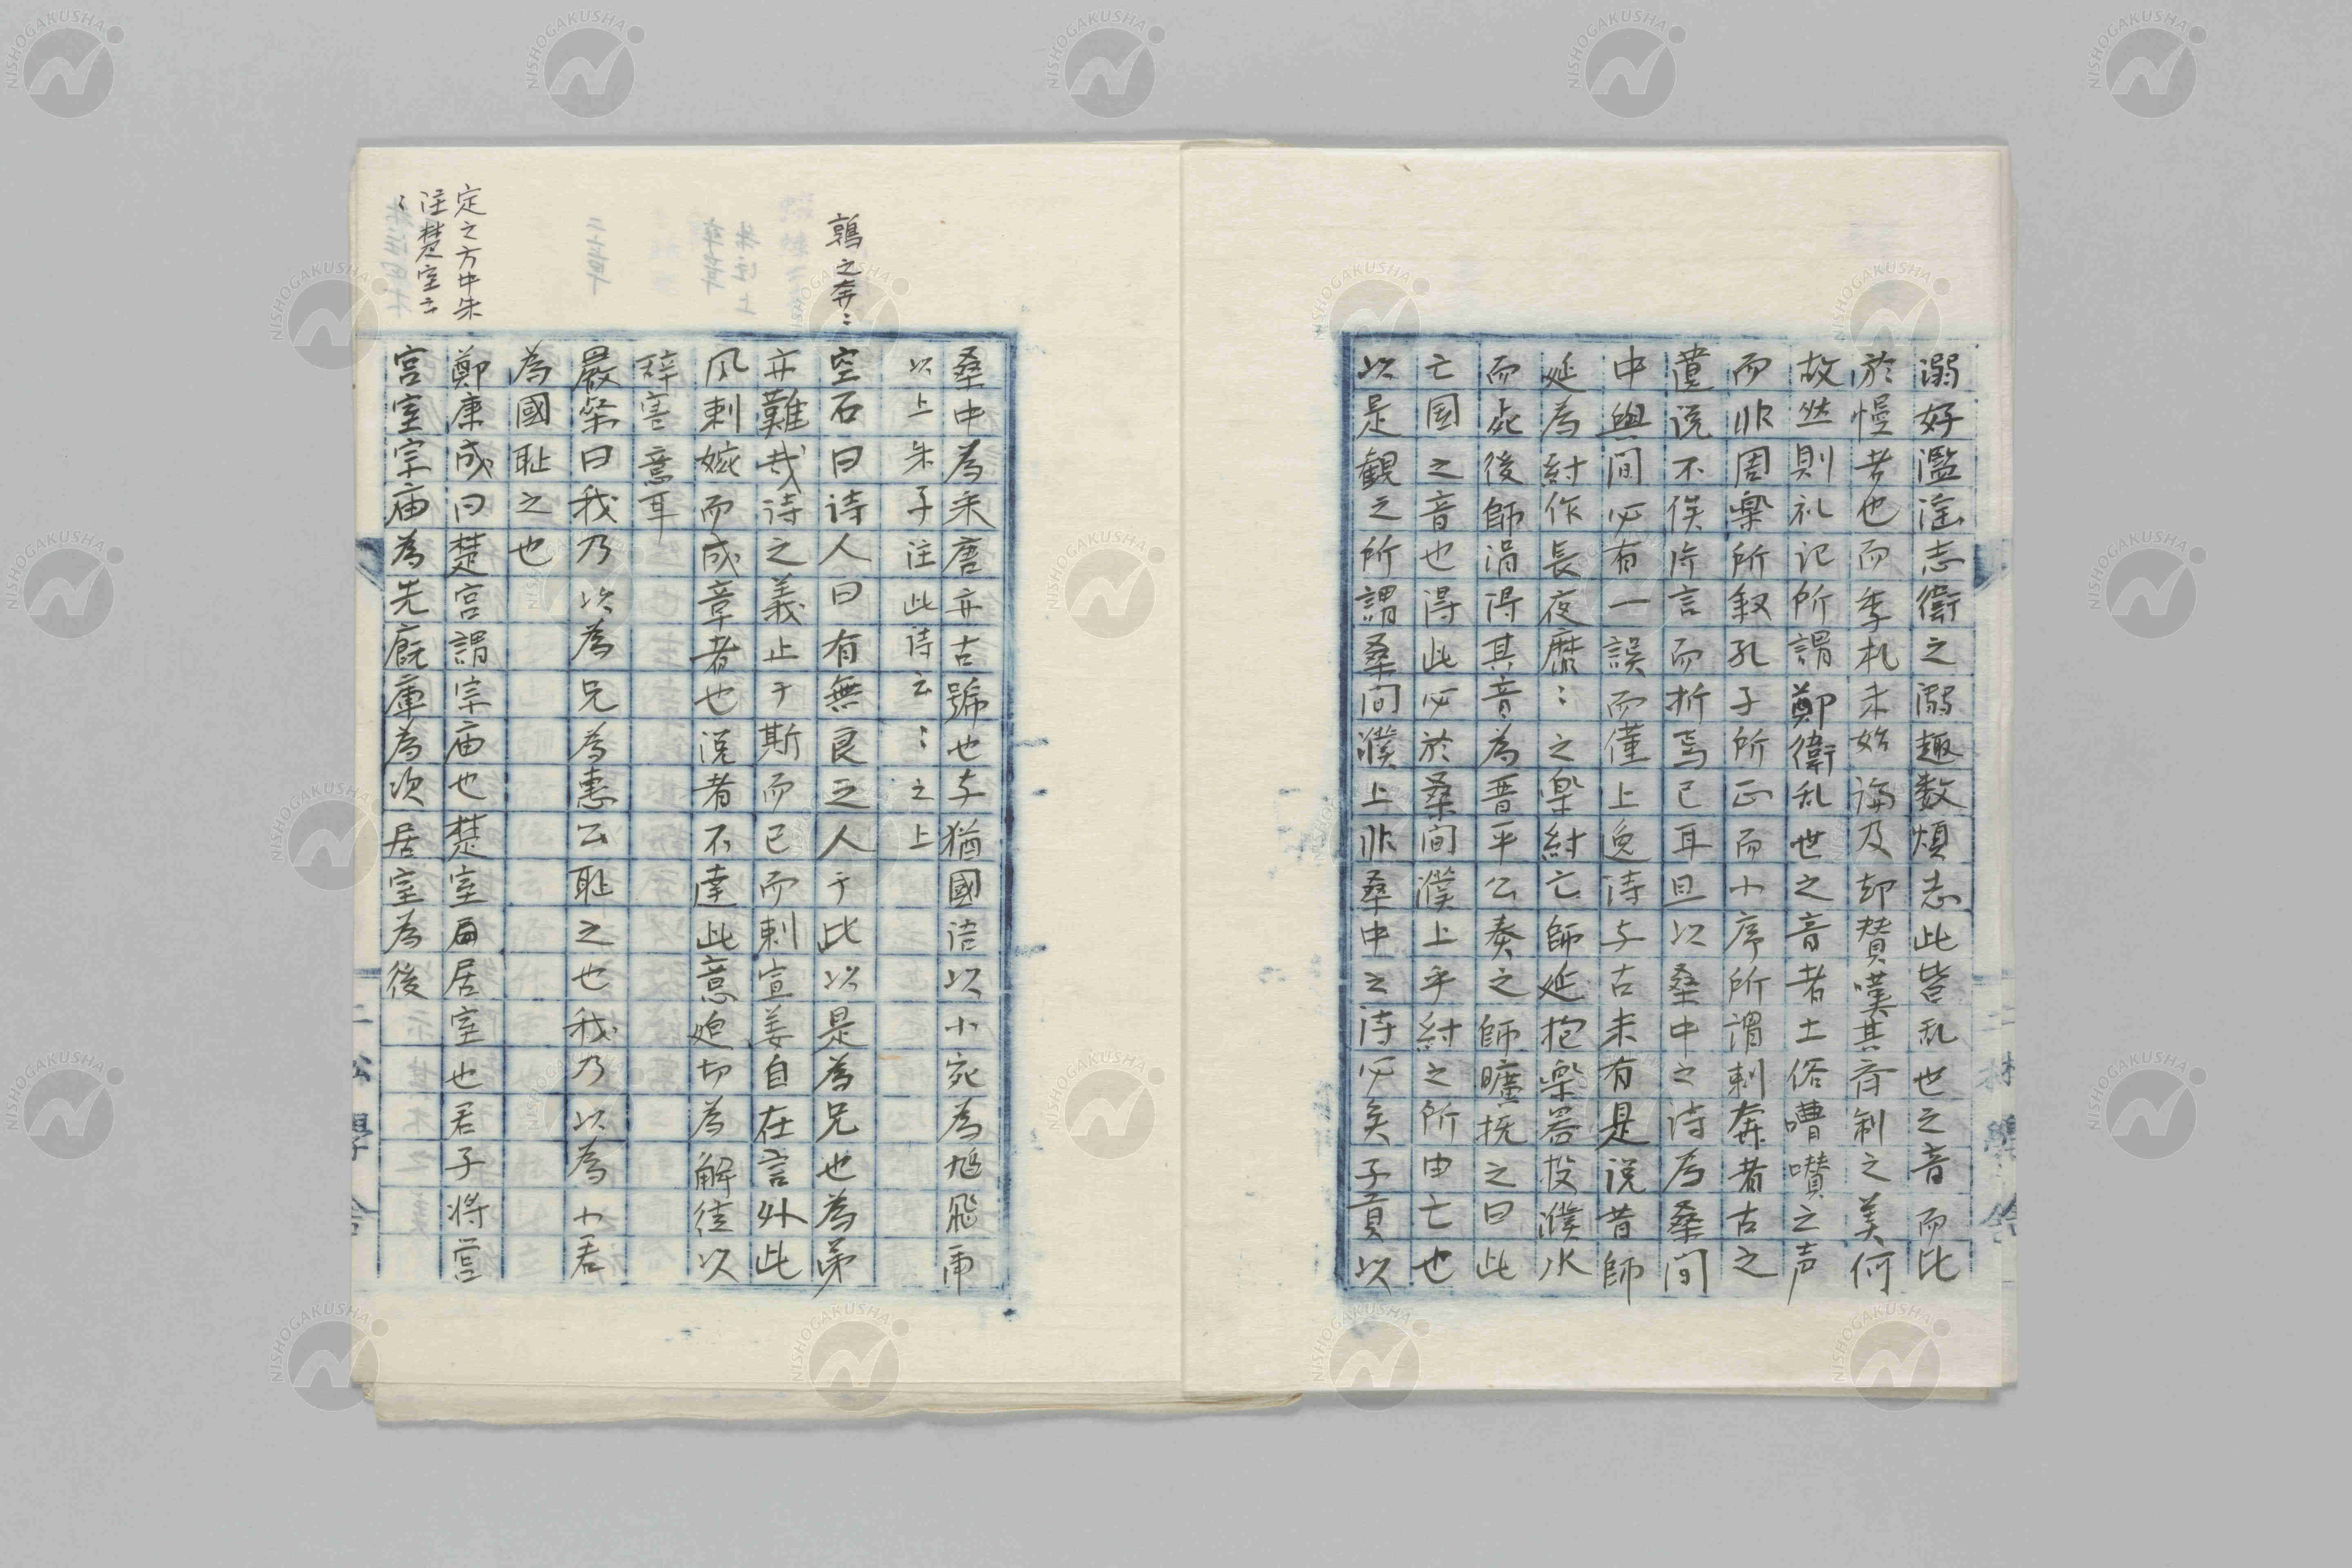 溺好濫淫志衞之溺趣数煩志此皆乱世之音而比
於慢者也而季札未始論及却賛嘆其斉制之美何
故然則礼記所謂鄭衞乱世之音者土俗嘈囋之声
而非周楽所叙孔子所正而小序所謂刺奔者古之
遺说不俟片言而折焉已耳且以桑中之诗為桑間
中與间必有一誤而僅上逸诗与古未有是说昔師
延為紂作長夜靡〻之楽紂亡師延抱楽器投濮水
而死後師涓得其音為晋平公奏之師曠抚之曰此
亡国之音也得此必於桑间濮上乎紂之所由亡也
以是観之所謂桑间濮上非桑中之诗必矣子貢以
桑中為采唐亦古號也与猶國语以小宛為鳩飛雨
以上朱子注此诗云〻之上
鶉之奔〻
空石曰诗人曰有無良之人于此以是為兄也為弟
亦難哉诗之義止于斯而已而刺宣姜自在言外此
风刺婉而成章者也说者不達此意迫切為解徒以
辞害意耳
嚴粲曰我乃以為兄為惠公恥之也我乃以為小君
為國恥之也
定之方中朱
注楚室云
〻
鄭康成曰楚宮謂宗庙也楚室居室也君子将営
宮室宗庙為先廐庫為次居室為後